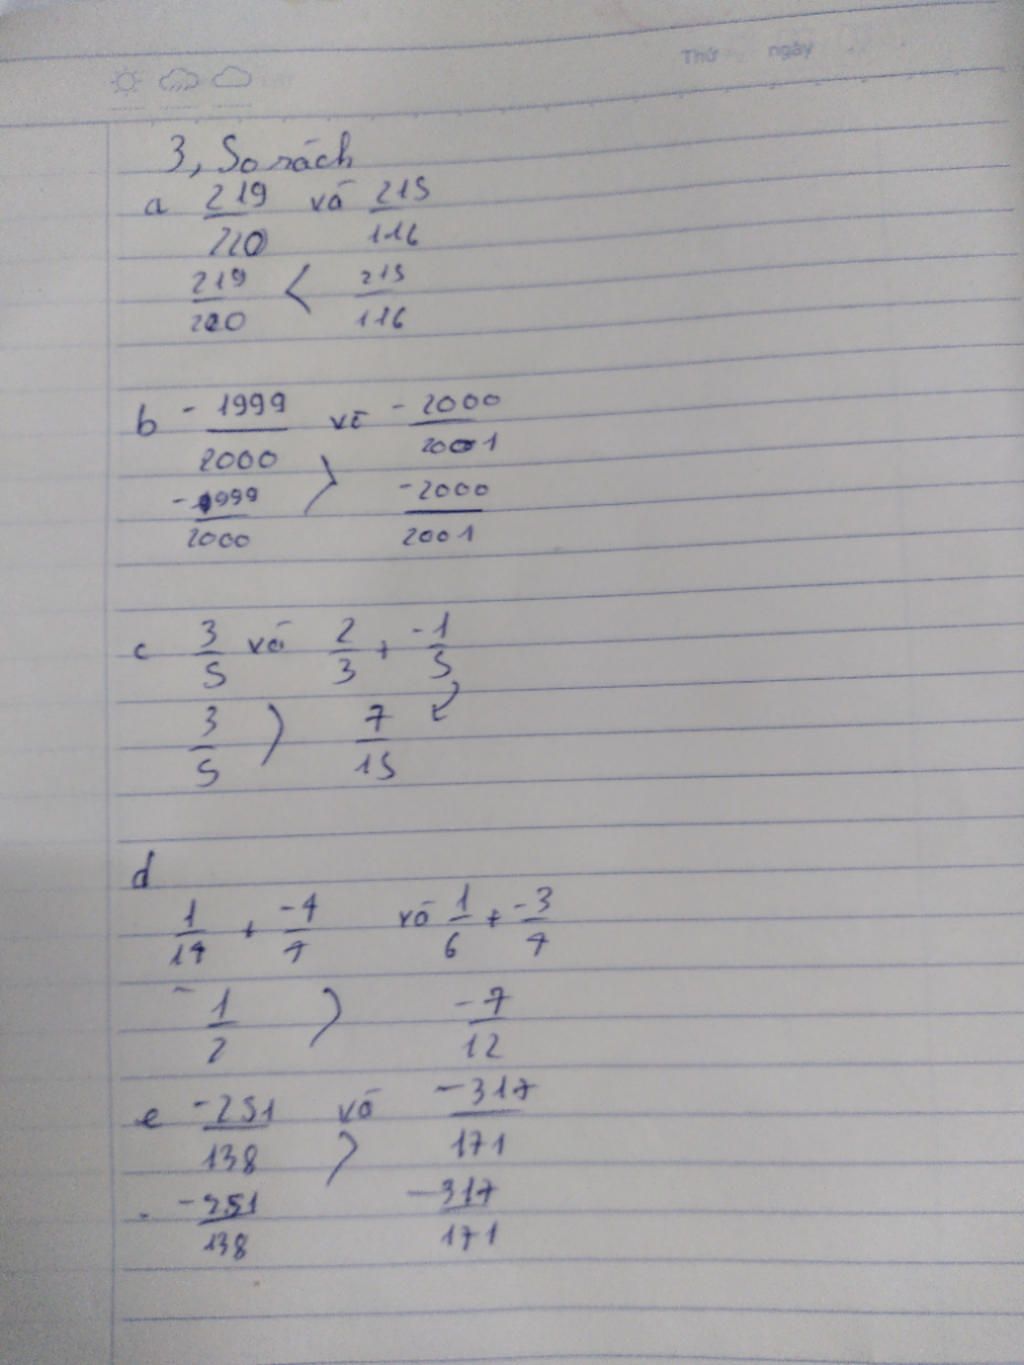 Thứ ngày
3, So sách
a 219/220 và 215/116
219/220 < 215/116
b -1999/2000 và -2000/2001
-1999/2000 > -2000/2001
c 3/5 và 2/3 + -1/5
3/5 > 7/15
d
1/14 + -4/7 và 1/6 + -3/4
-1/2 > -7/12
e -251/138 và -317/171
-251/138 > -317/171